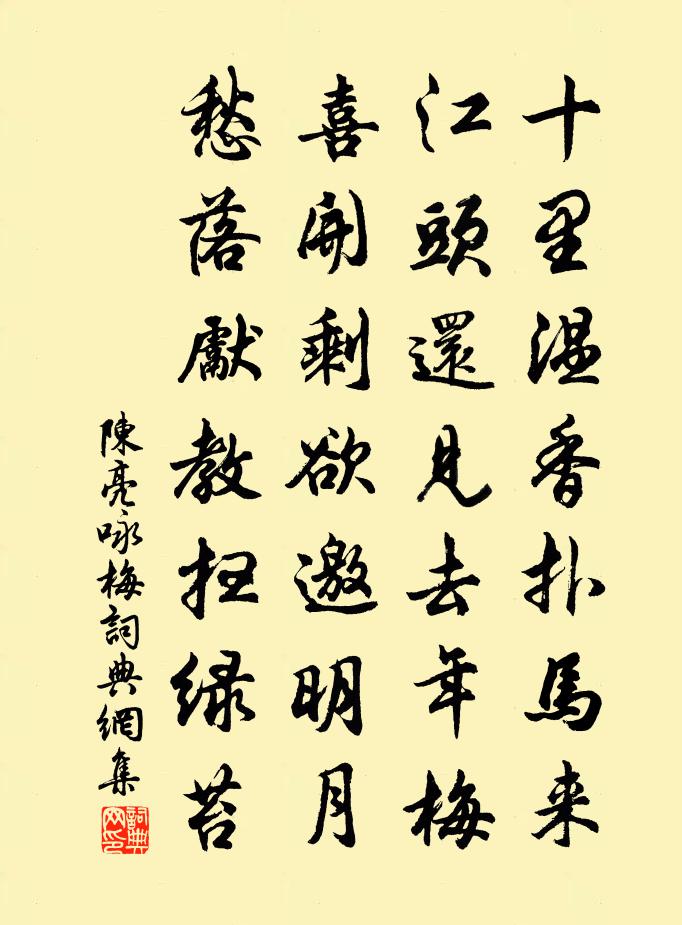 十里温香扑馬来
江頭還見去年梅
喜開剩欲邀明月
愁落獻教扫绿苔
陳亮咏梅詞典網集
詞典网印